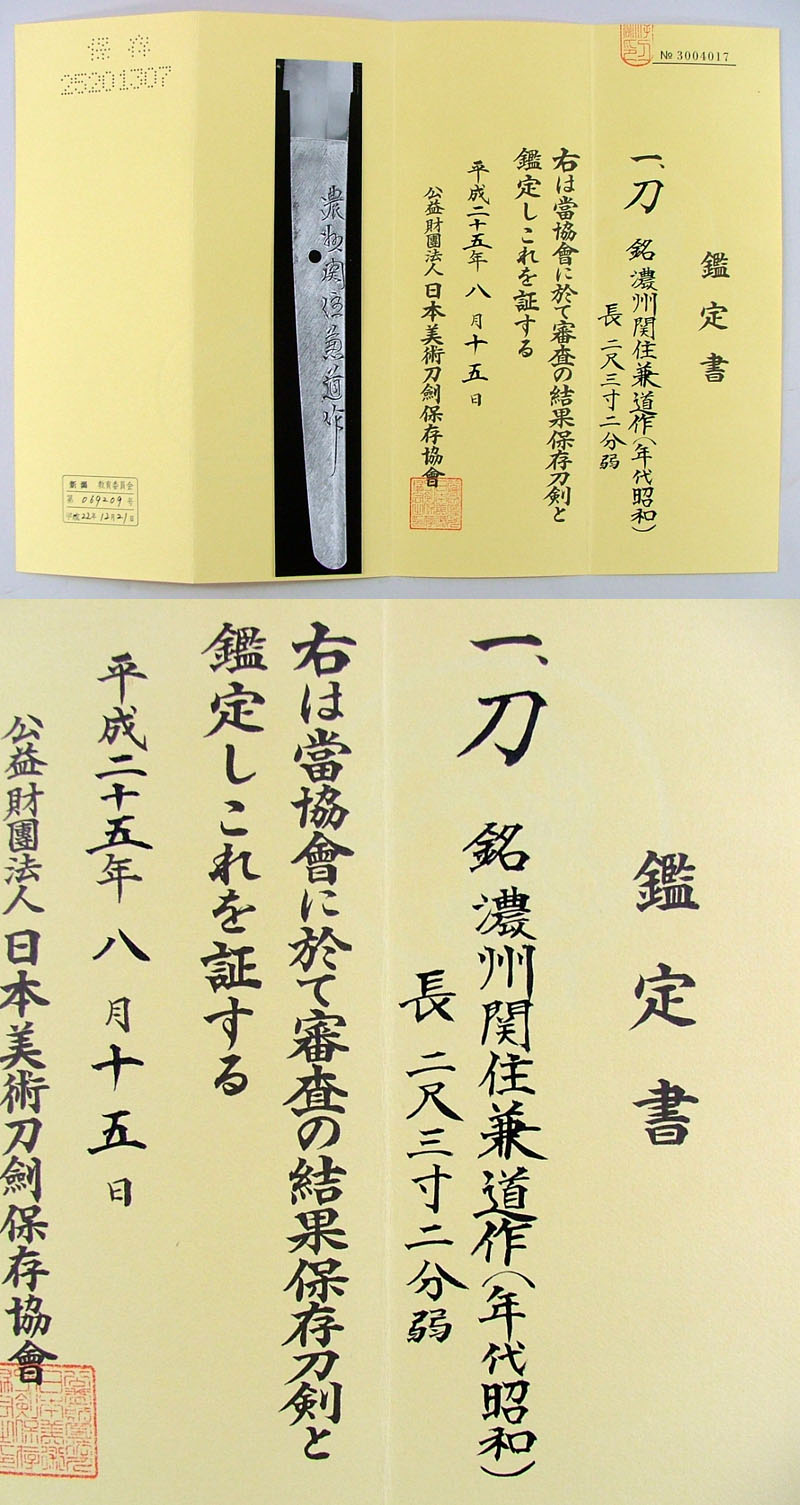 № 3004017
鑑定書
一、刀 銘 濃州関住兼道作(年代昭和)
長 二尺三寸二分弱
右は當協會に於て審査の結果保存刀剣と
鑑定しこれを証する
平成二十五年 八 月 十 五 日
公益財團法人 日本美術刀劍保存協會
濃州関住兼道作
保存
25201307
新潟 教育委員会
第 069209 号
平成22年12月21日
鑑定書
一、刀 銘 濃州関住兼道作(年代昭和)
長 二尺三寸二分弱
右は當協會に於て審査の結果保存刀剣と
鑑定しこれを証する
平成二十五年 八 月 十 五 日
公益財團法人 日本美術刀劍保存協會